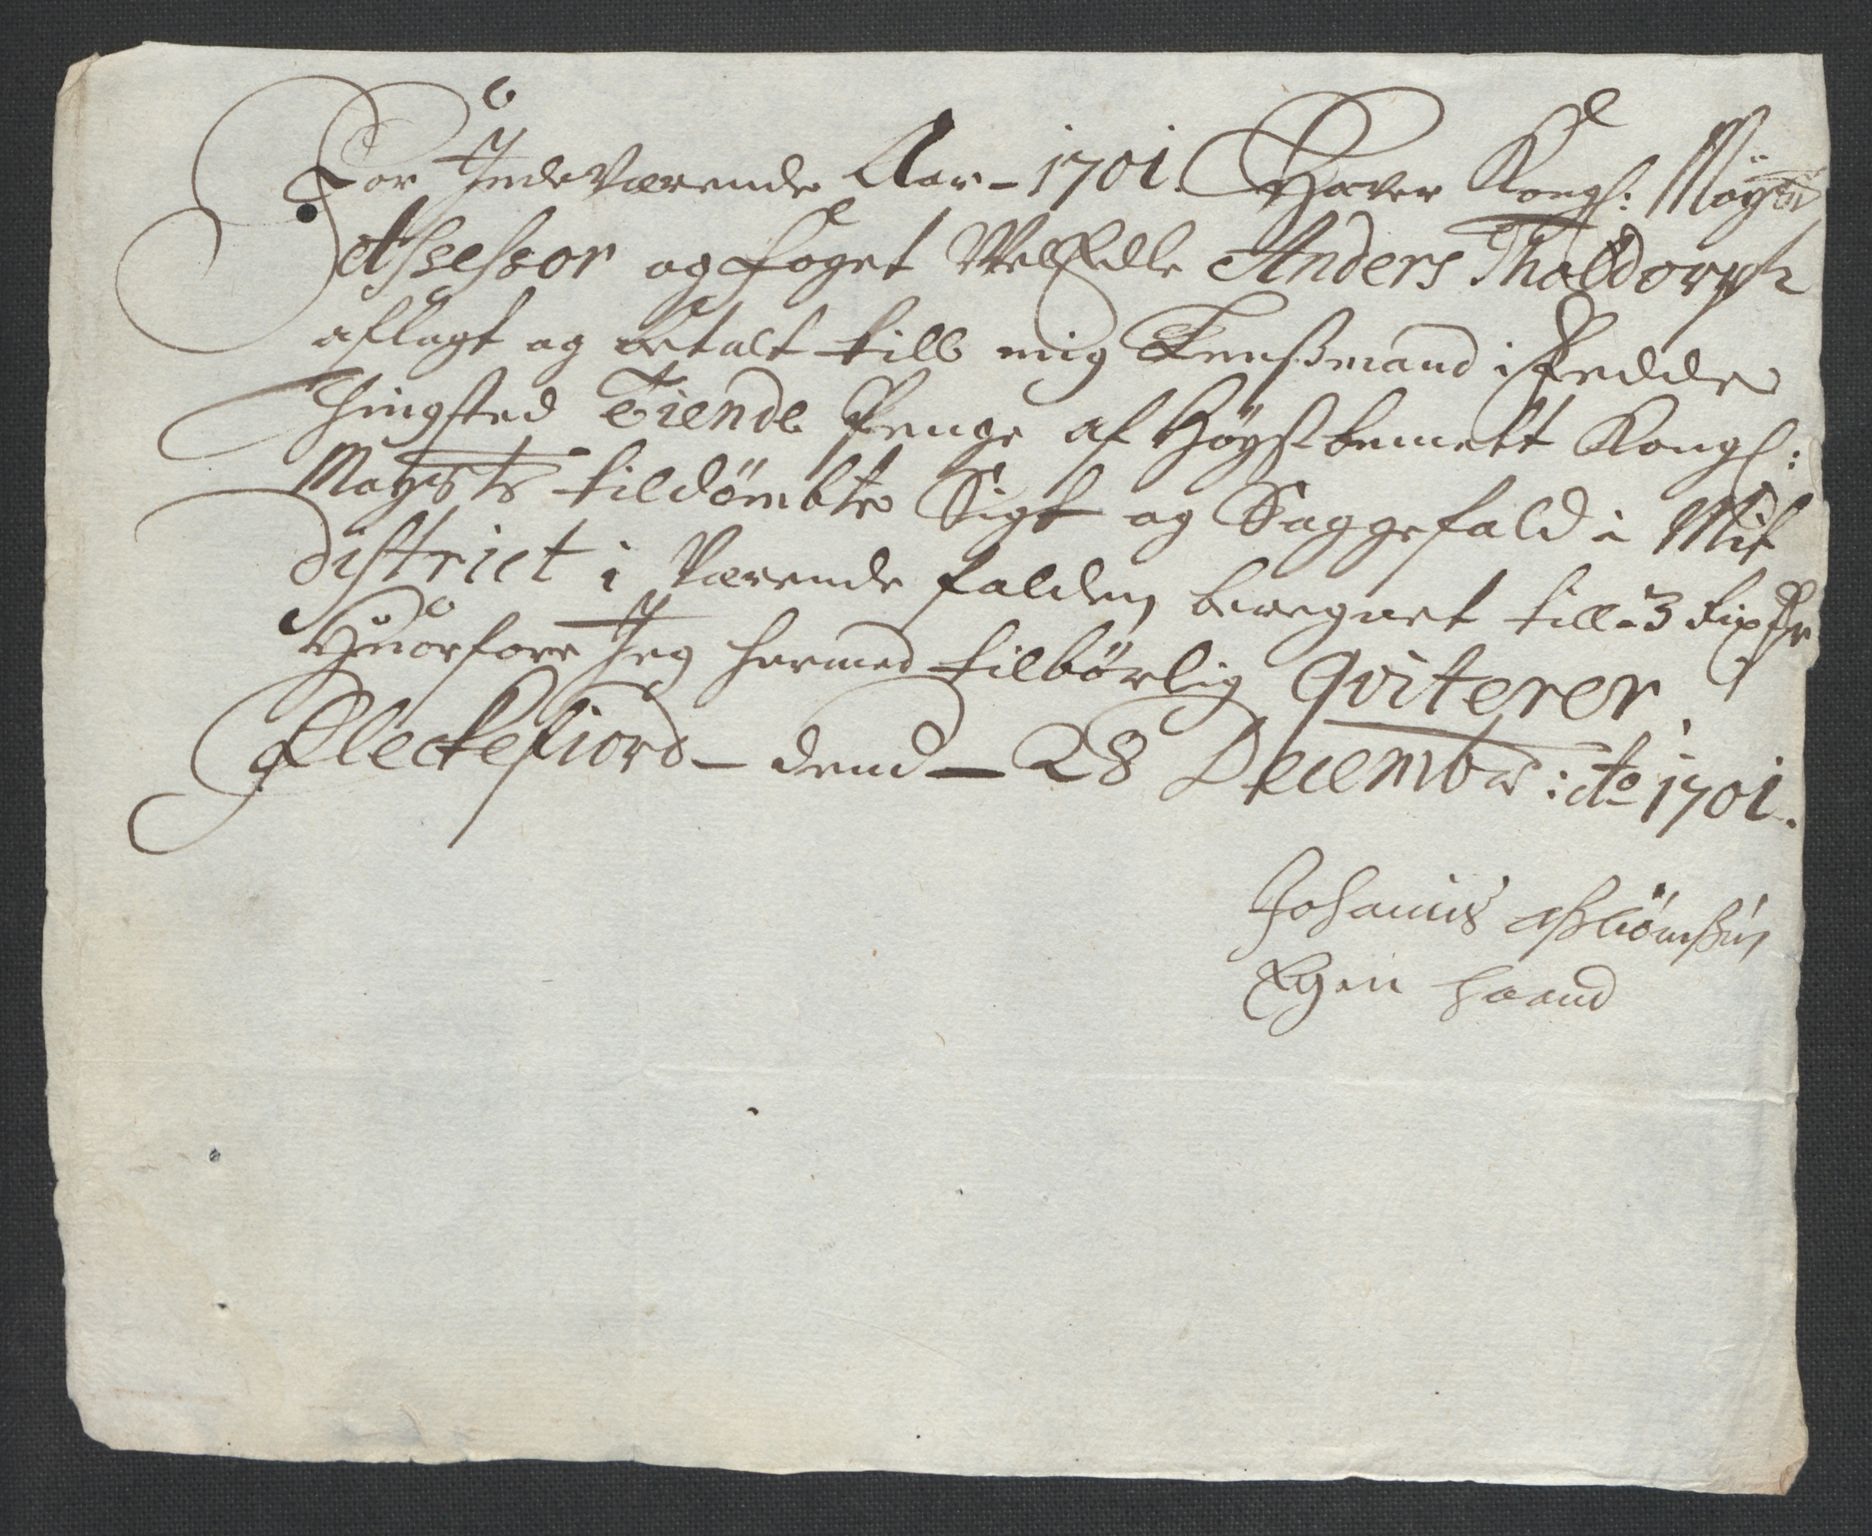 For Indeværende Aar - 1701. Haver Kongl: May:ts
Assessor og Foget Velædle Anders Thaldorph
aflagt og betalt till mig Lenßmand i Fedde
Thingsted Tiende Penge af Høystbemelt Kongl:
Mayts tildømbte Sigt og Saggefald i Mit
District i Værende falden beregnet till - 3 rixdr
Huorfore Jeg hermed tilbørlig Qviterer
Fleckefiord - dend - 28 Decembr: Ao 1701.
Johannis Aßbiörnßøn
Egen haand